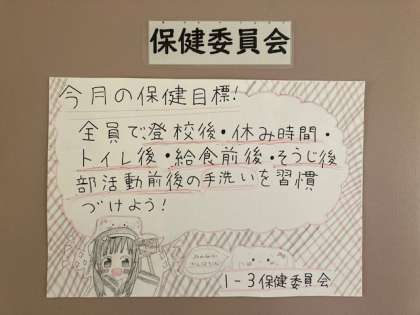 保健委員会
今月の保健目標!
全員で登校後・休み時間・
トイレ後・給食前後・そうじ後
部活動前後の手洗いを習慣
づけよう!
1-3保健委員会